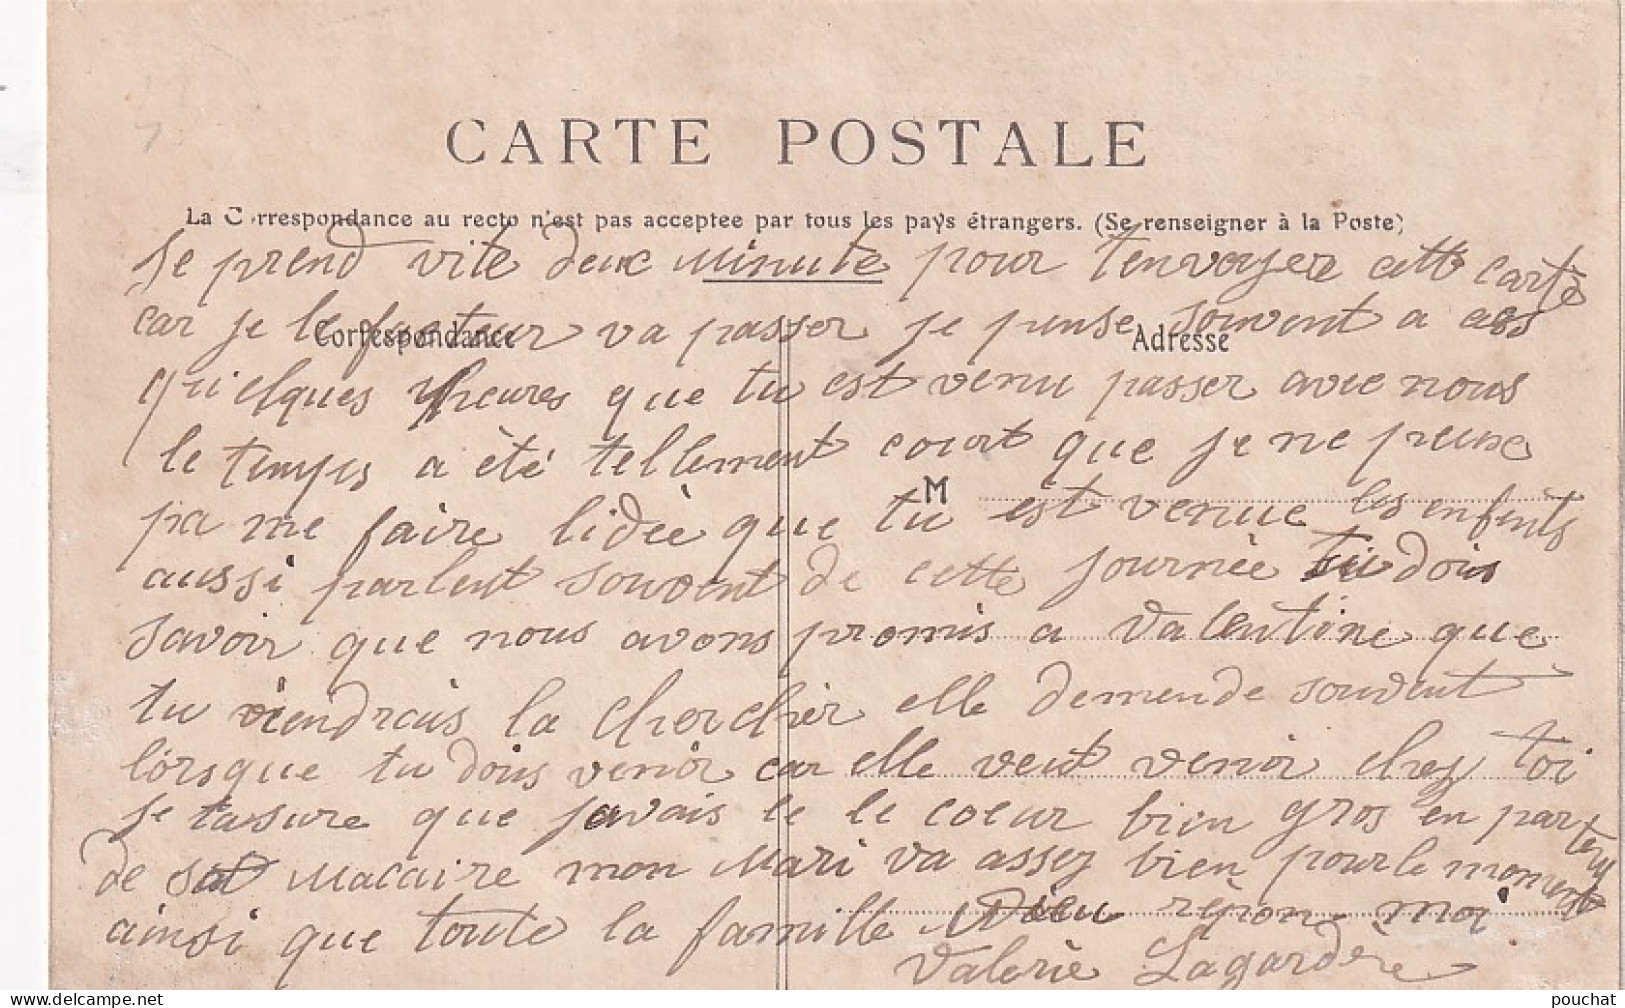 CARTE POSTALE
La Correspondance au recto n'est pas acceptee par tous les pays étrangers. (Se renseigner à la Poste)
Je prend vite deuc minute pour t'envoyer cett carte
car je le facteur va passer je pense souvent a ces
Correspondance
Adresse
quielques heures que tu est venu passer avec nous
le temps a été tellement court que je ne peuse
M
pa me faire lidèe que tu est venue les enfents
aussi parlent souvent de cette journèe tu dois
savoir que nous avons promis a Valentine que
tu viendrais la chercher elle demende souvent
lorsque tu dois venir car elle veut venir chez toi
je tasure que javais le le coeur bien gros en par
de st Macaire mon Mari va assez bien pour le moment
ainsi que toute la famille rèpon-moi
Valerie Lagardère
pouchat
www.delcampe.net